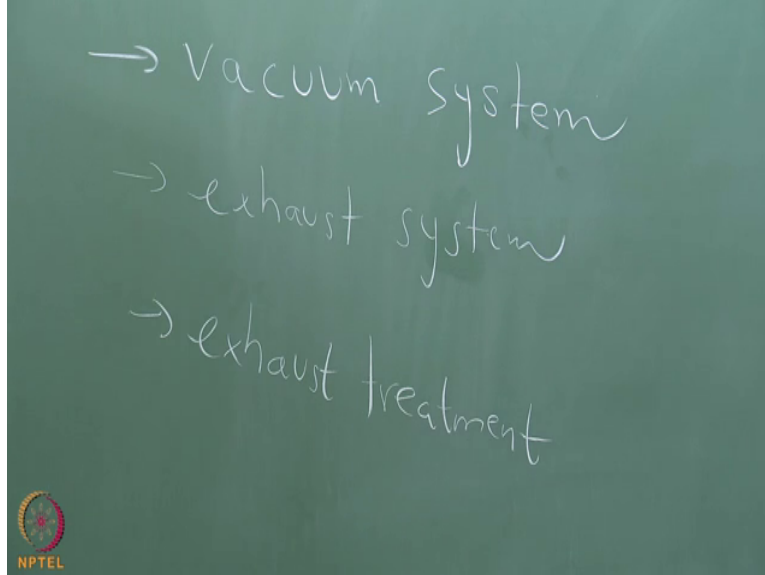 → Vacuum system
→ exhaust system
→ exhaust treatment
NPTEL